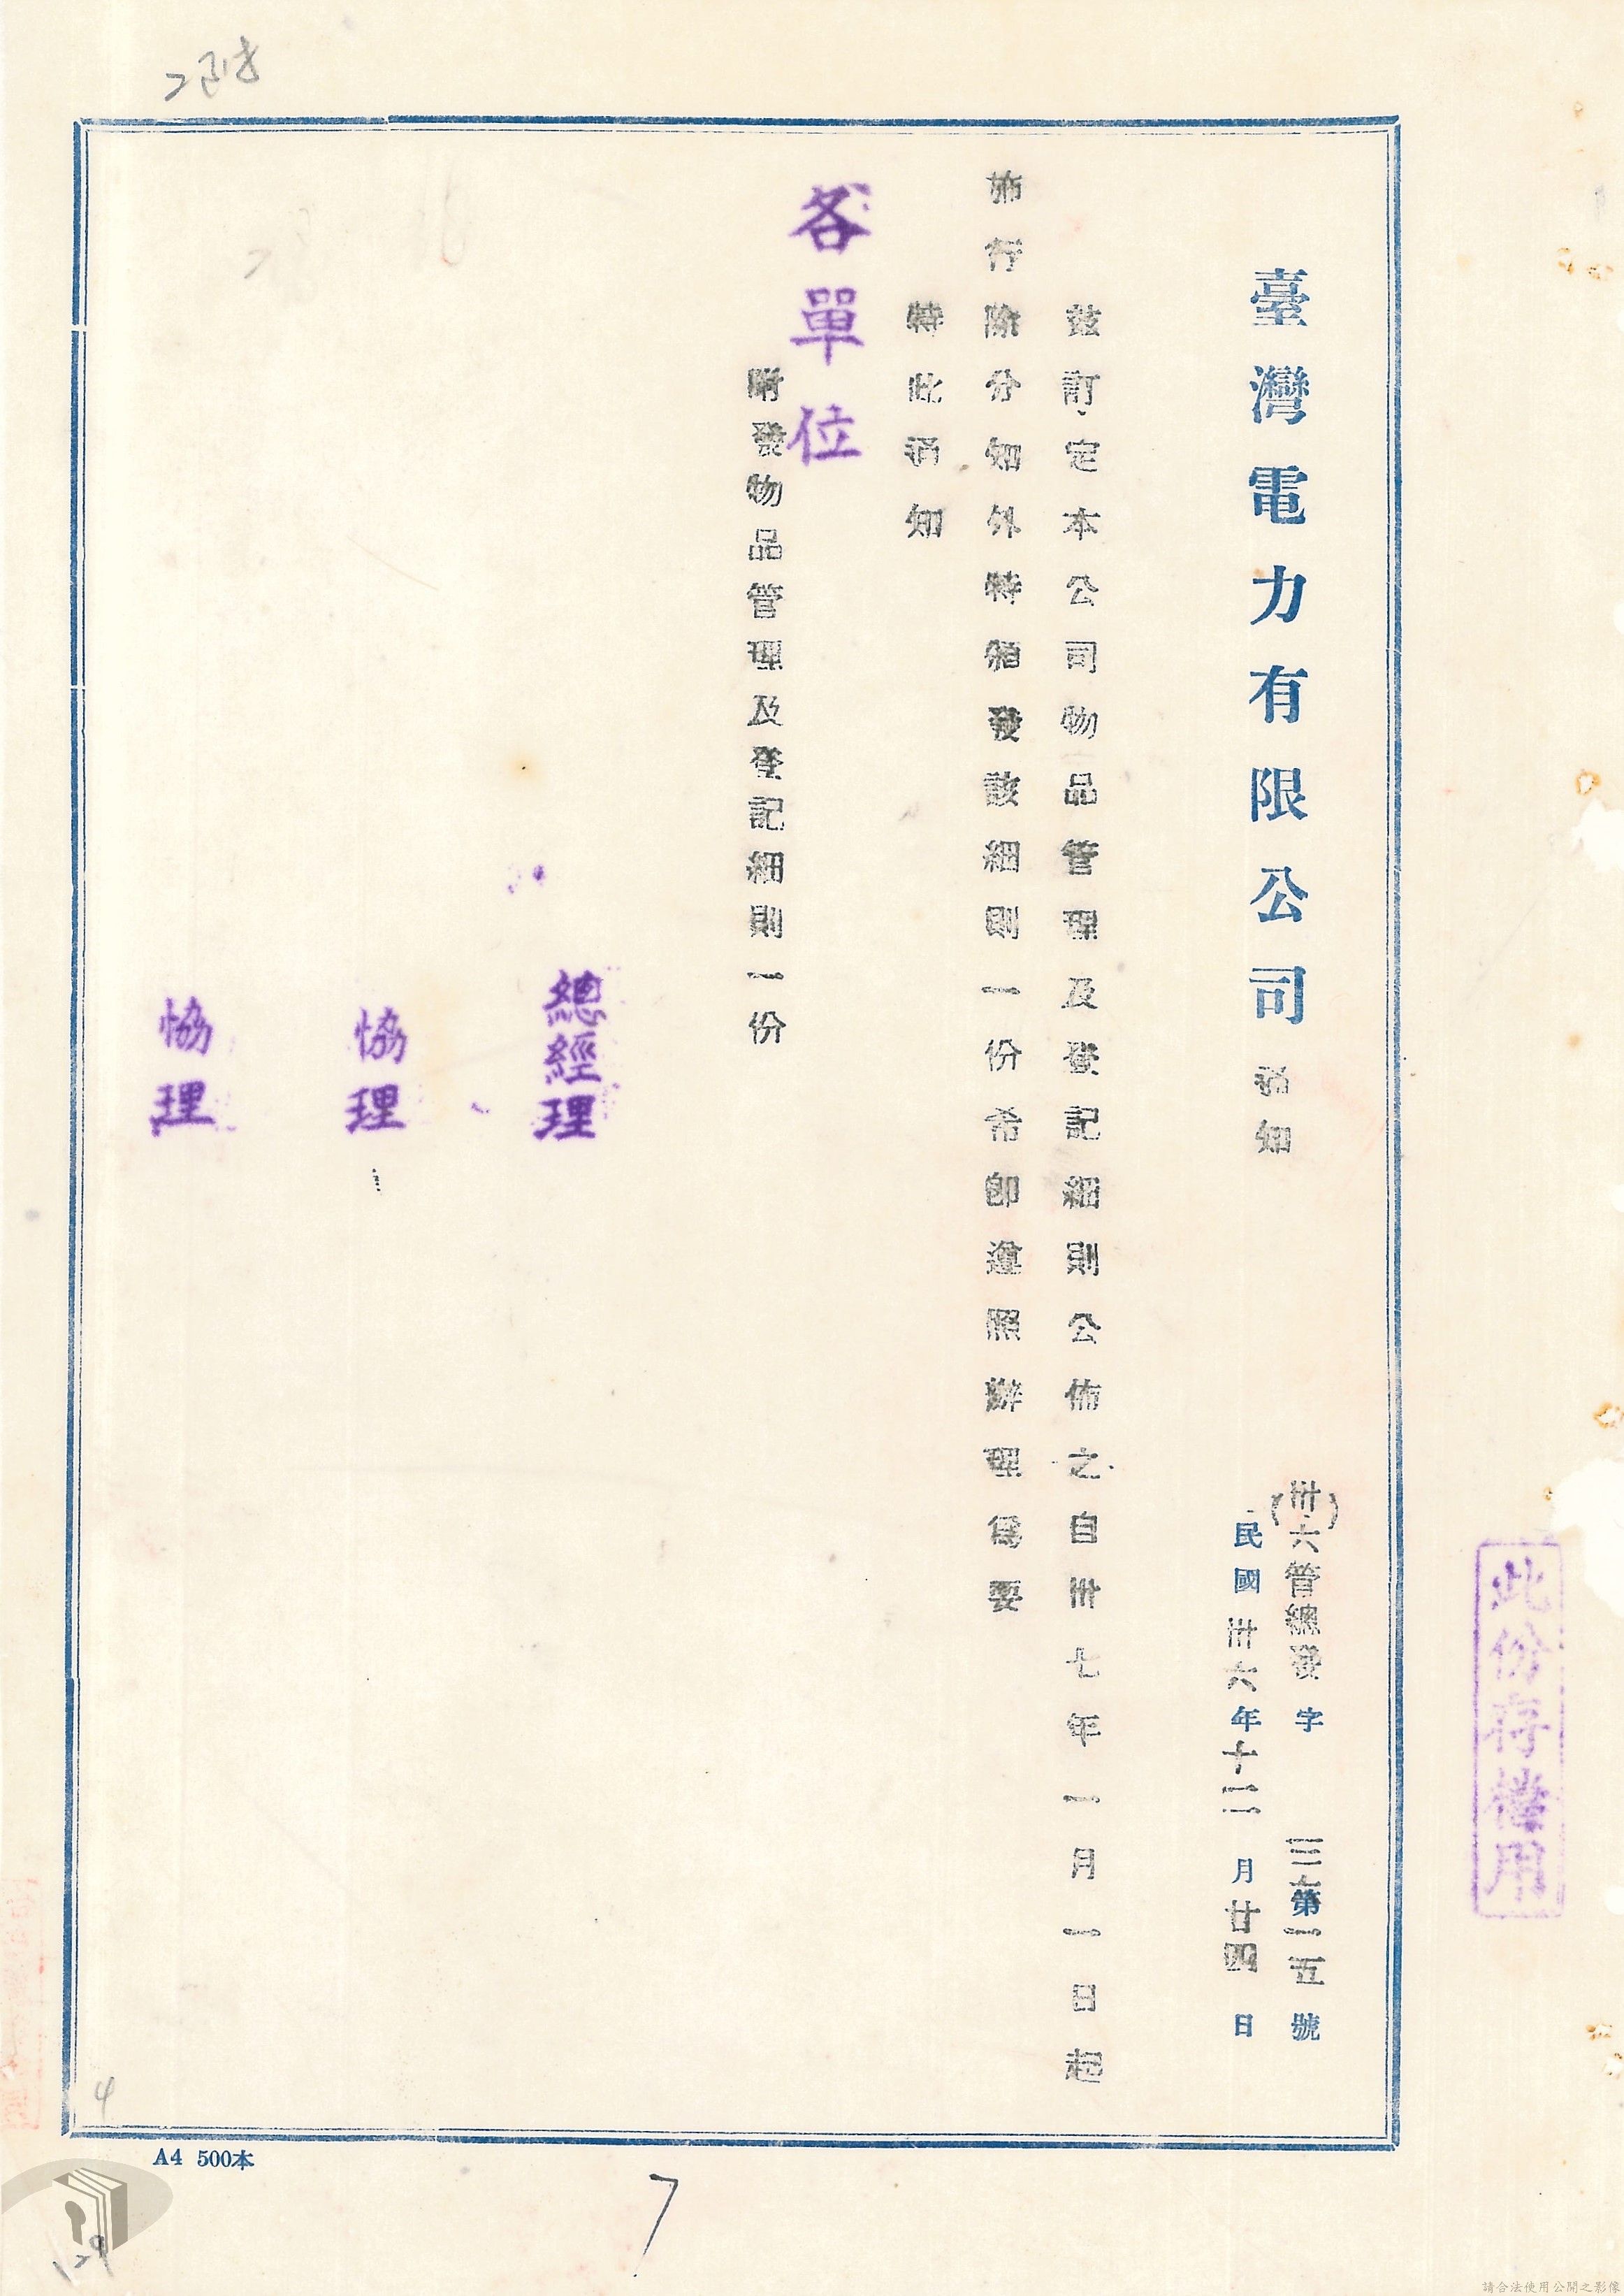 臺灣電力有限公司 通知
(卅六)管總發字第三三七二五號
民國卅六年十二月廿四日
茲訂定本公司物品管理及登記細則公佈之自卅七年一月一日起
施行除分知外特頒發該細則一份希即遵照辦理為要
特此通知
各單位
附發物品管理及登記細則一份
總經理
協理
協理
此份存檔用
A4 500本
4
7
129
請合法使用公開之影像